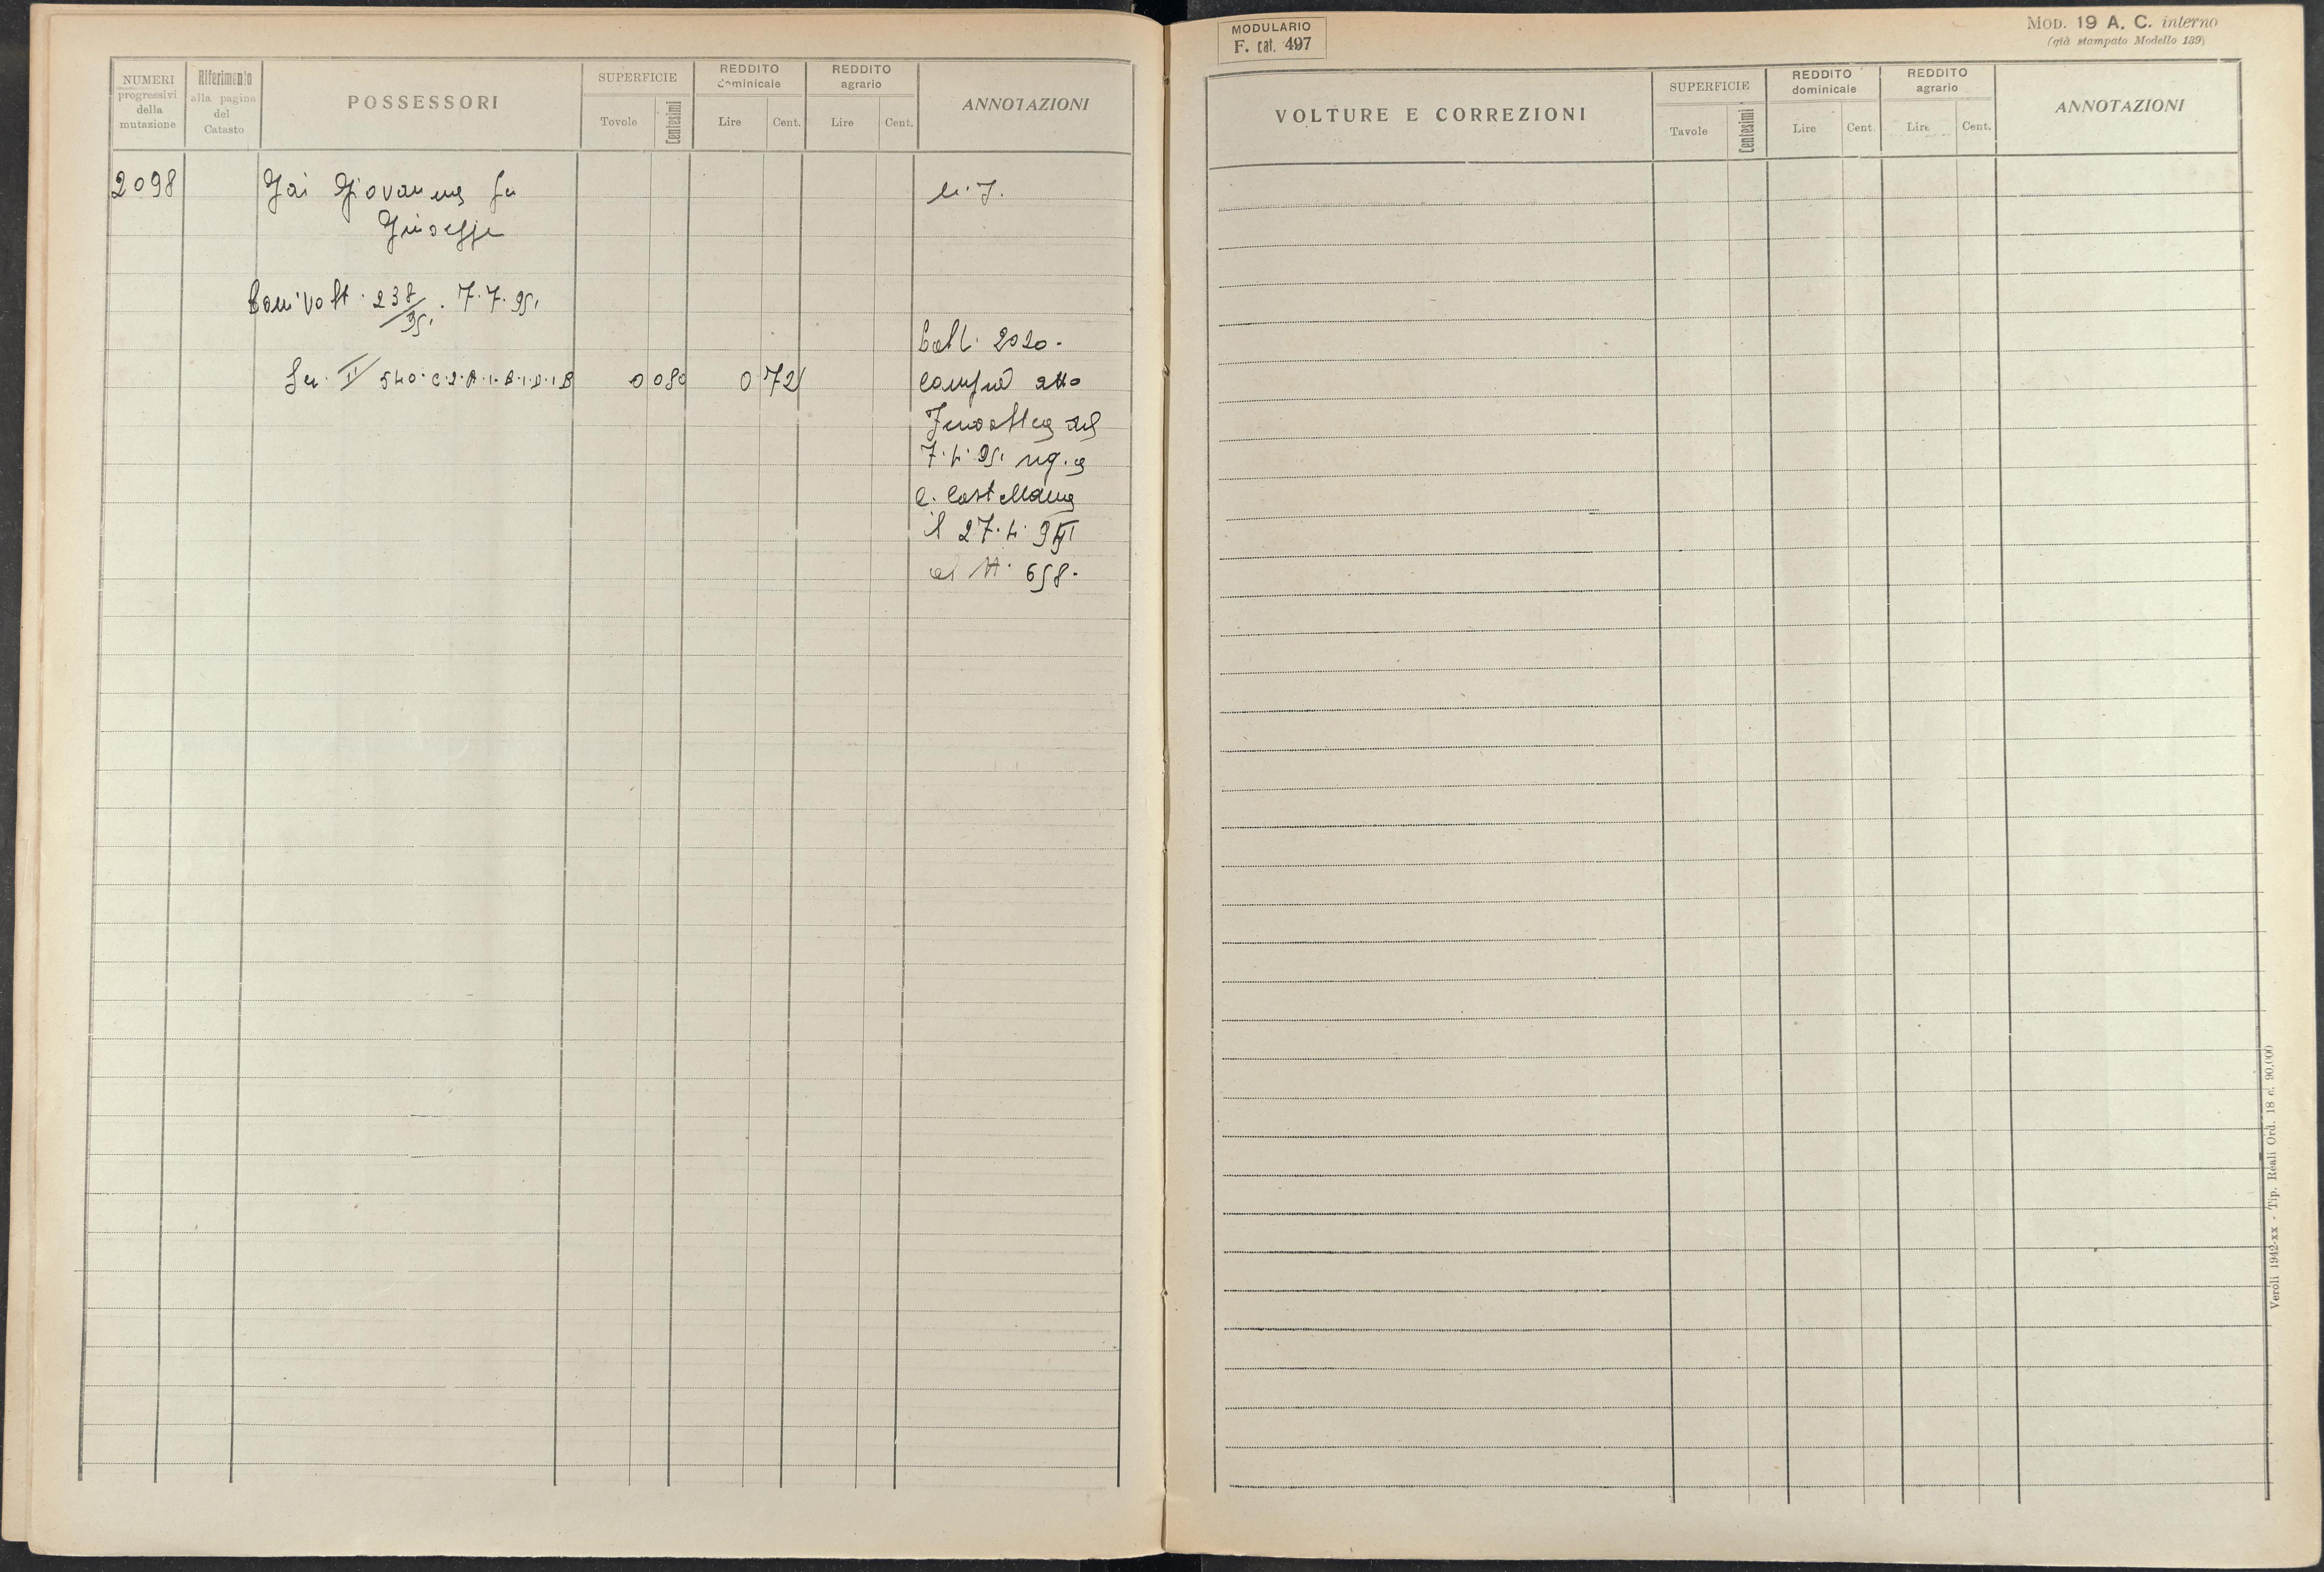 NUMERI
progressivi
della
mutazione
Riferimento
alla pagina
del
Catasto
POSSESSORI
SUPERFICIE
Tavole
Centesimi
REDDITO
dominicale
Lire
Cent.
REDDITO
agrario
Lire
Cent.
ANNOTAZIONI
2098
Giovanna fu
Giuseppe
Volt. 238/951. 7.7.951
Sez. II 540.C.2.A.1.B.1.D.1.B
0 080
0 72
2020.
Compra atto
del
7.4.951 reg. a
C. Castellana
il 27.4.951
al N. 658.
MODULARIO
F. cat. 497
MOD. 19 A. C. interno
(già stampato Modello 139)
VOLTURE E CORREZIONI
SUPERFICIE
Tavole
Centesimi
REDDITO
dominicale
Lire
Cent.
REDDITO
agrario
Lire
Cent.
ANNOTAZIONI
Veroli 1942-xx - Tip. Reali Ord. 18 c. 90.000